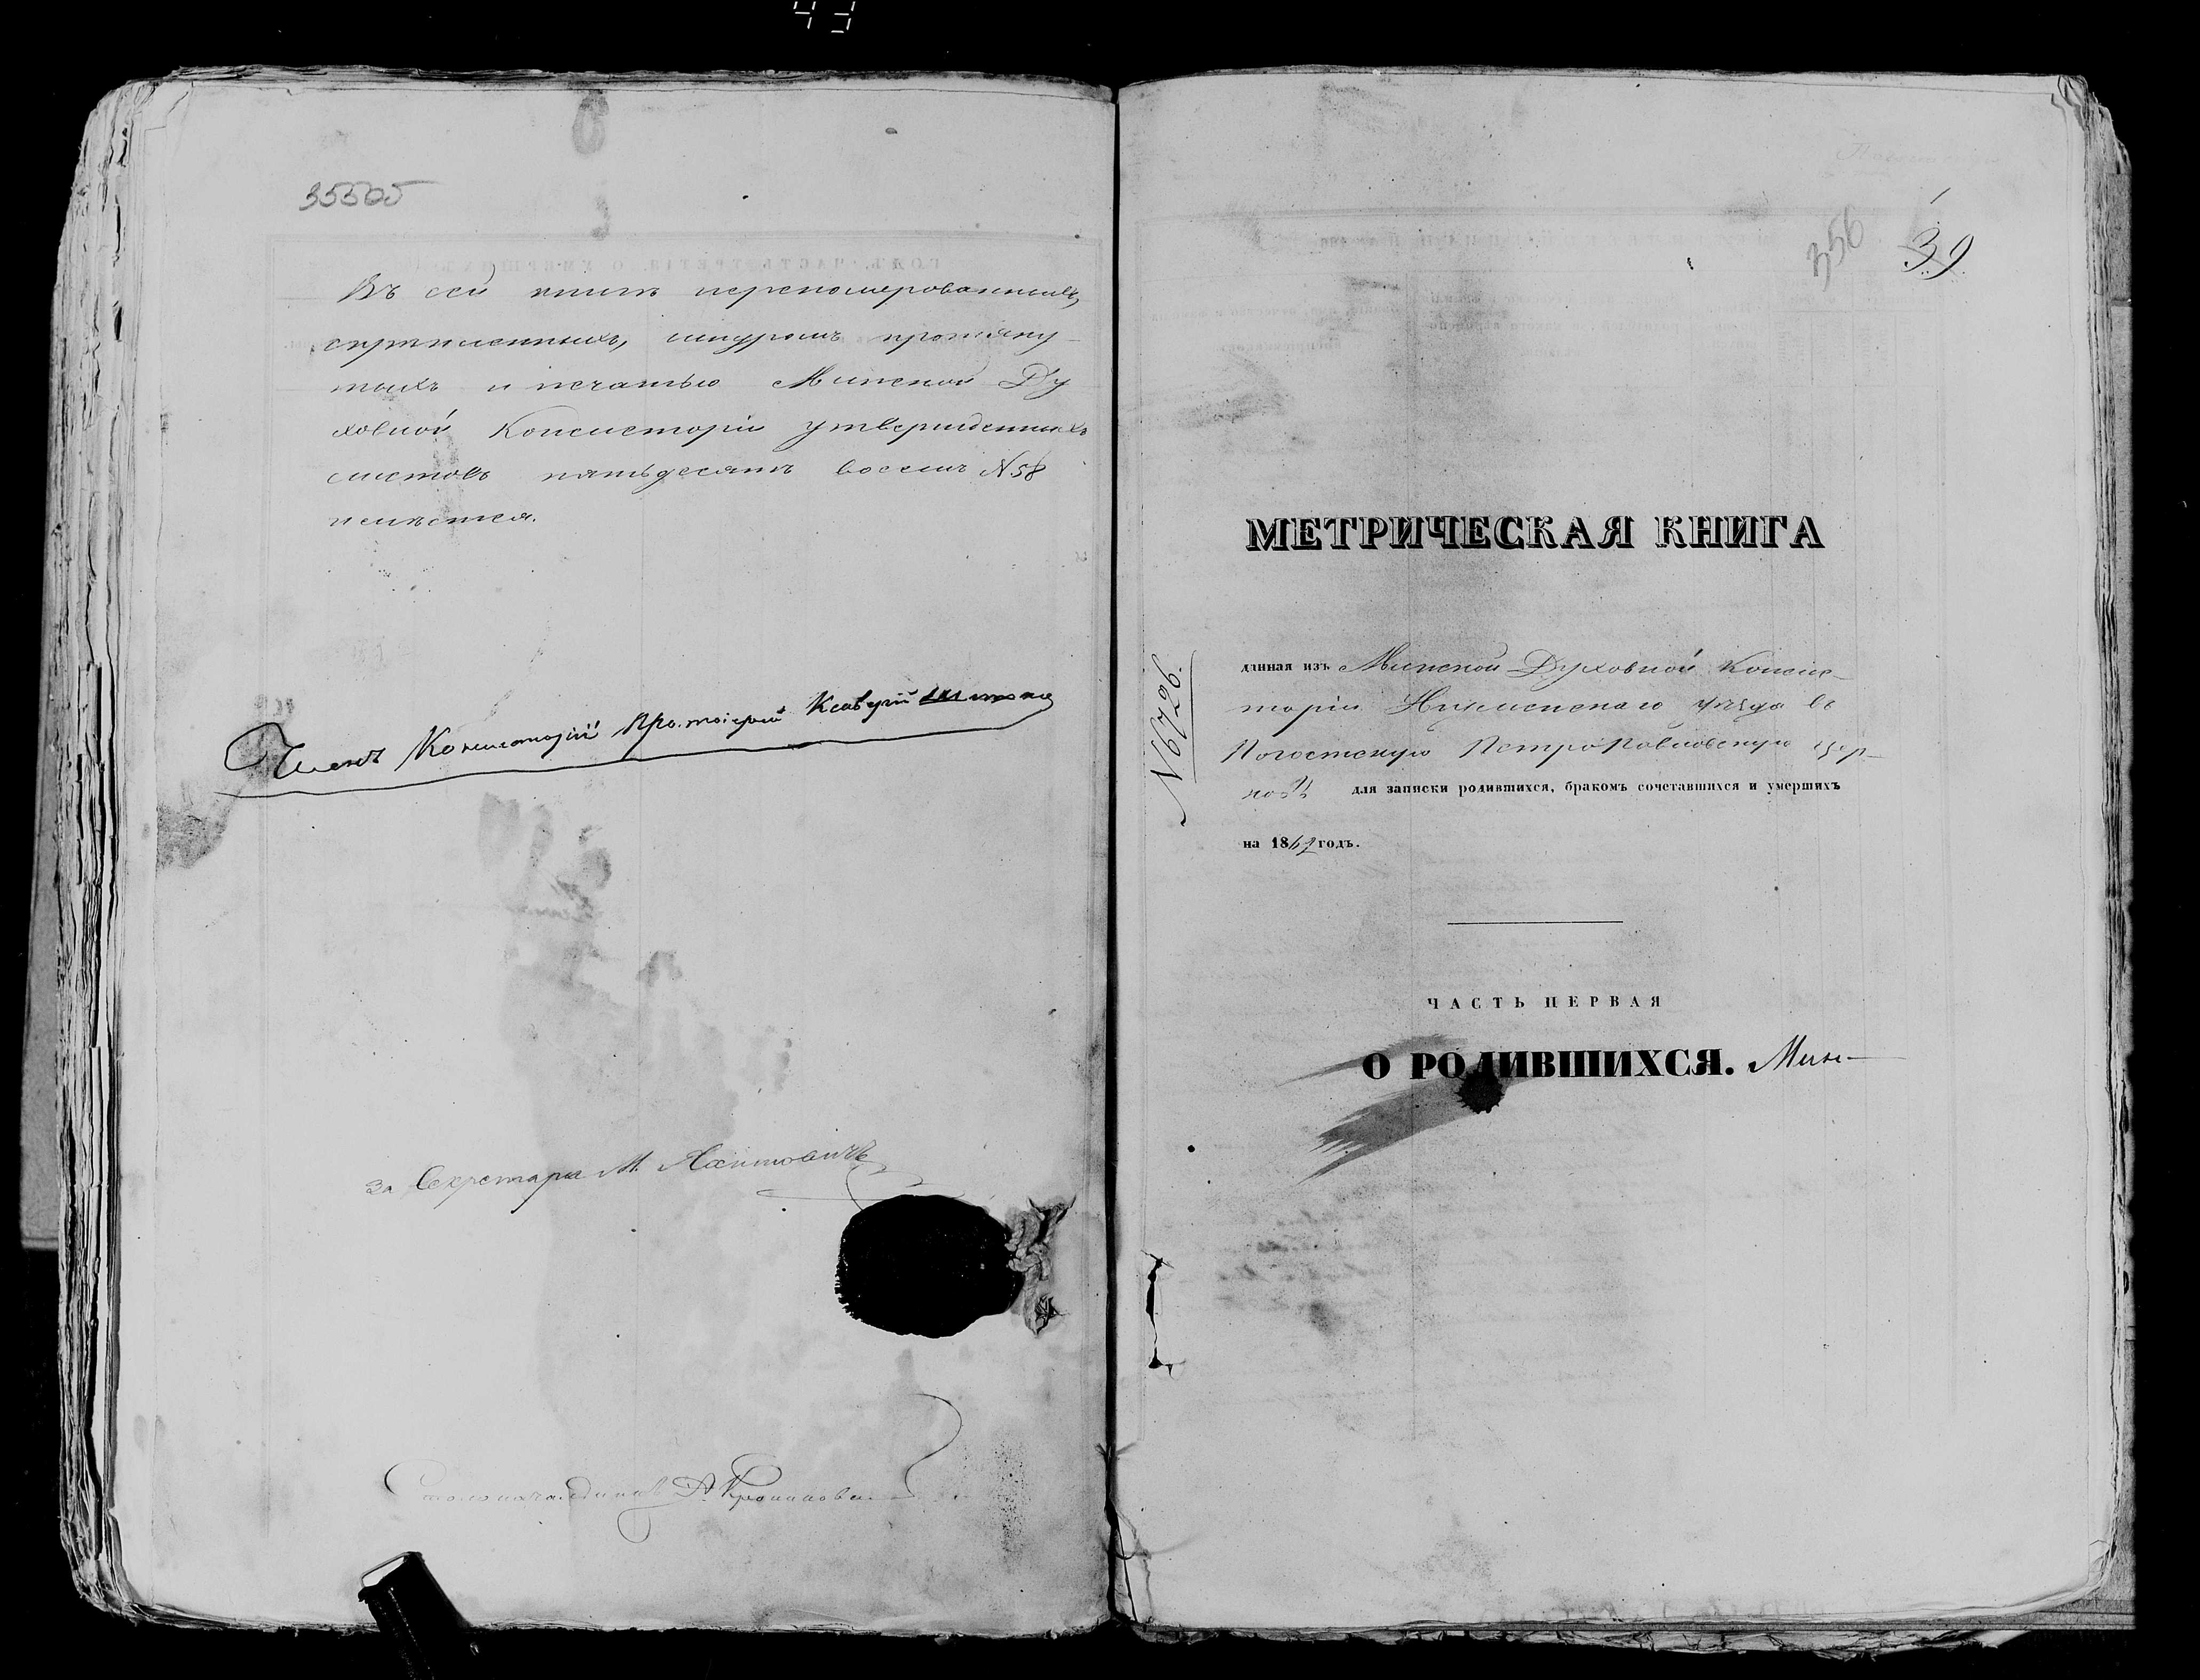 43
35505
Въ сей книгѣ переномерованныхъ,
скрѣпленныхъ, шнуромъ протяну-
тыхъ и печатью Минской Ду
ховной Консисторіи утвержденныхъ
листовъ пятьдесятъ восемь N 58
имѣется.
Членъ Консисторіи Протоіерей Ксаверій
За Секретаря М.
Столоначальникъ
356
39
МЕТРИЧЕСКАЯ КНИГА
N 6726.
данная изъ Минской Духовной Консис-
торіи Игуменскаго уѣзда въ
Погостскую Петро Павловскую цер-
ковь для записки родившихся, бракомъ сочетавшихся и умершихъ
на 1862 годъ.
ЧАСТЬ ПЕРВАЯ
О РОДИВШИХСЯ. Мин-